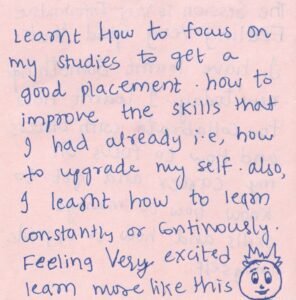 Learnt How to focus on
my studies to get a
good placement. how to
improve the skills that
I had already i.e, how
to upgrade my self. also,
I learnt how to learn
constantly or Continously.
Feeling Very excited
learn more like this